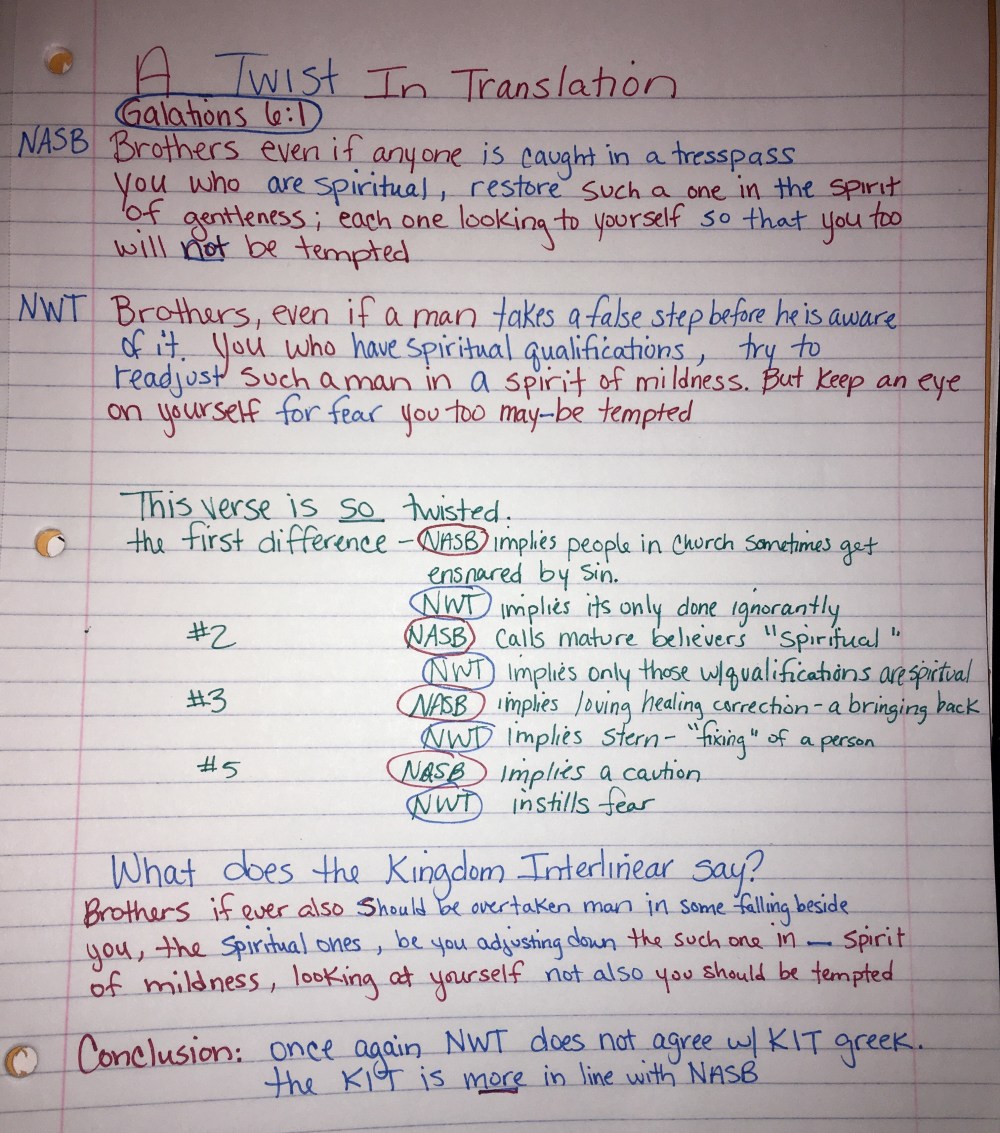 A Twist In Translation
Galations 6:1
NASB Brothers even if anyone is caught in a tresspass
you who are spiritual, restore such a one in the spirit
of gentleness; each one looking to yourself so that you too
will not be tempted
NWT Brothers, even if a man takes a false step before he is aware
of it. You who have spiritual qualifications, try to
readjust such a man in a spirit of mildness. But keep an eye
on yourself for fear you too may-be tempted
This verse is so twisted.
the first difference - NASB implies people in church sometimes get
ensnared by sin.
NWT implies its only done ignorantly
#2 NASB Calls mature believers "spiritual"
NWT implies only those w/qualifications are spiritual
#3 NASB implies loving healing correction - a bringing back
NWT implies stern - "fixing" of a person
#5 NASB implies a caution
NWT instills fear
What does the Kingdom Interlinear say?
Brothers if ever also should be overtaken man in some falling beside
you, the spiritual ones, be you adjusting down the such one in — spirit
of mildness, looking at yourself not also you should be tempted
Conclusion: once again NWT does not agree w/ KIT greek.
the KIT is more in line with NASB